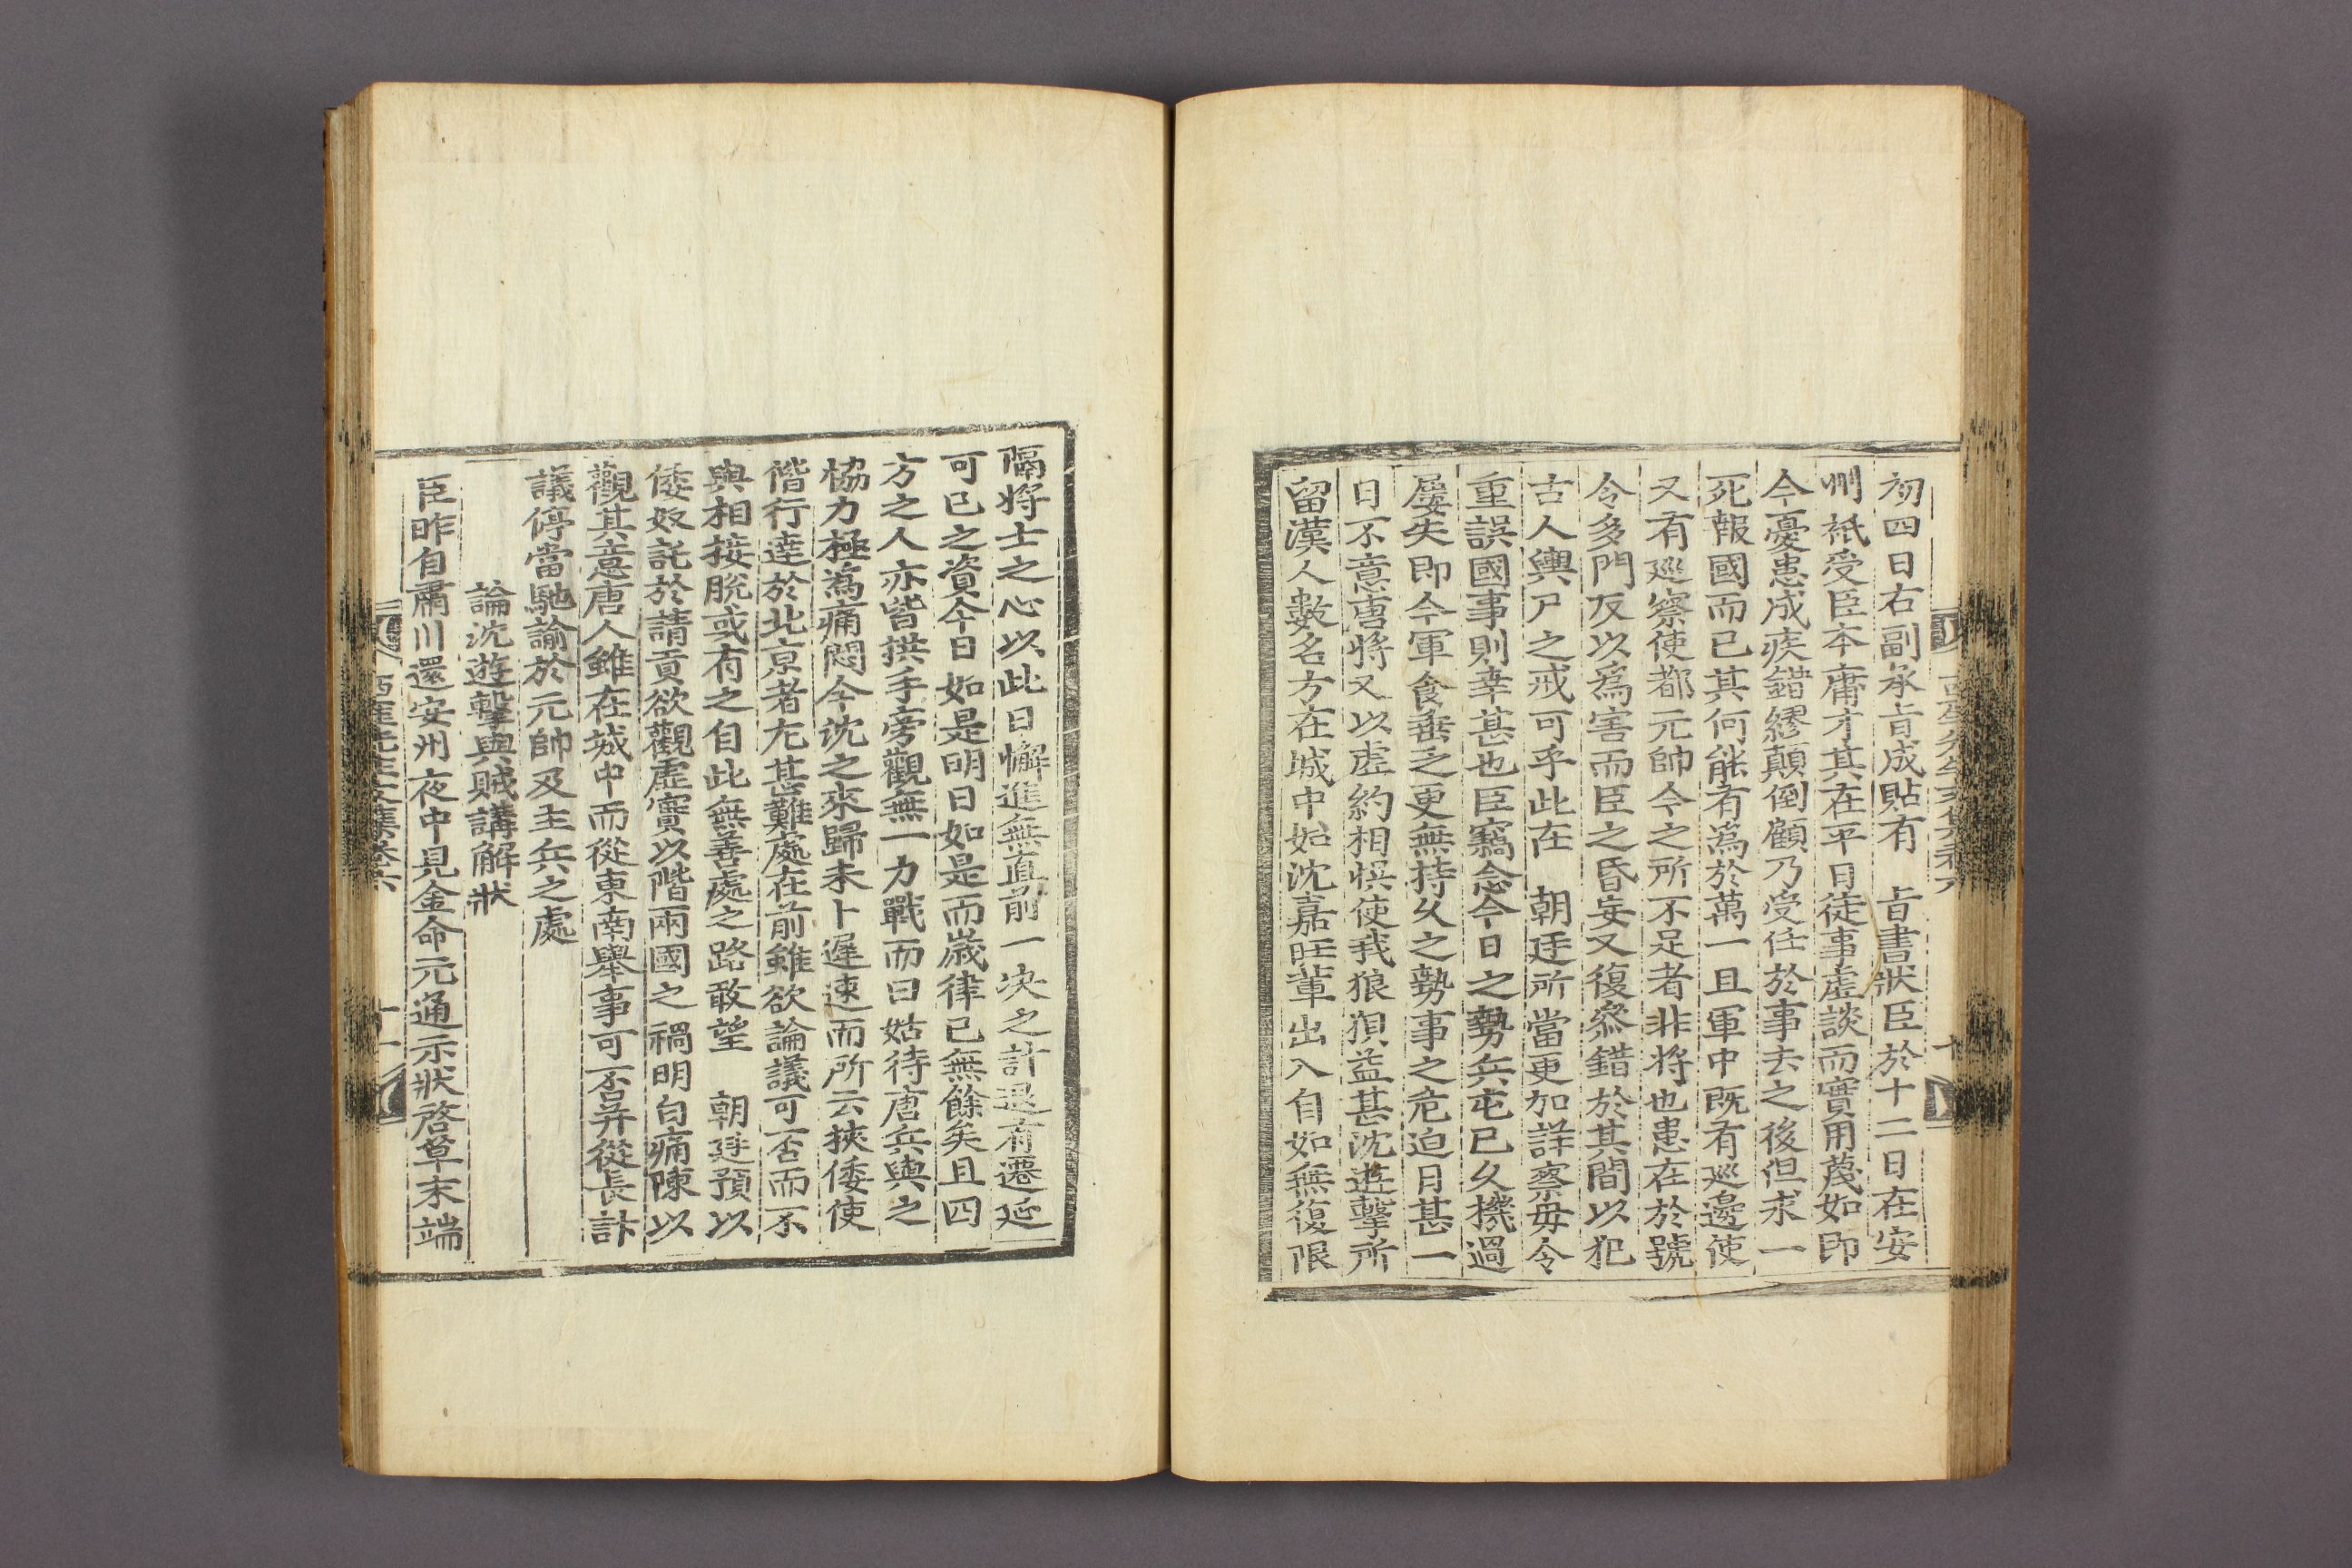 初四日右副承旨成貼有　旨書狀臣於十二日在安
州祗受臣本庸才其在平日徒事虛談而實用蔑如即
今憂患成疾錯繆顛倒顧乃受任於事去之後但求一
死報國而已其何能有爲於萬一且軍中既有巡邊使
又有巡察使都元帥今之所不足者非將也患在於號
令多門反以爲害而臣之昏妄又復參錯於其間以犯
古人輿尸之戒可乎此在　朝廷所當更加詳察毋令
重誤國事則幸甚也臣竊念今日之勢兵屯已久機過
屢失即今軍食垂乏更無持久之勢事之危迫日甚一
日不意唐將又以虛約相悞使我狼狽益甚沈遊擊所
留漢人數名方在城中如沈嘉旺輩出入自如無復限
隔將士之心以此日懈進無直前一決之計退有遷延
可已之資今日如是明日如是而歲律已無餘矣且四
方之人亦皆拱手旁觀無一力戰而曰姑待唐兵與之
協力極爲痛悶今沈之來歸未卜遲速而所云挾倭使
偕行達於北京者尤甚難處在前雖欲論議可否而不
與相接脫或有之自此無善處之路敢望　朝廷預以
倭奴託於請貢欲觀虛實以階兩國之禍明白痛陳以
觀其意唐人雖在城中而從東南舉事可否幷從長計
議停當馳諭於元帥及主兵之處
論沈遊擊與賊講解狀
臣昨自肅川還安州夜中見金命元通示狀啓草末端
西厓先生文集卷六
十一